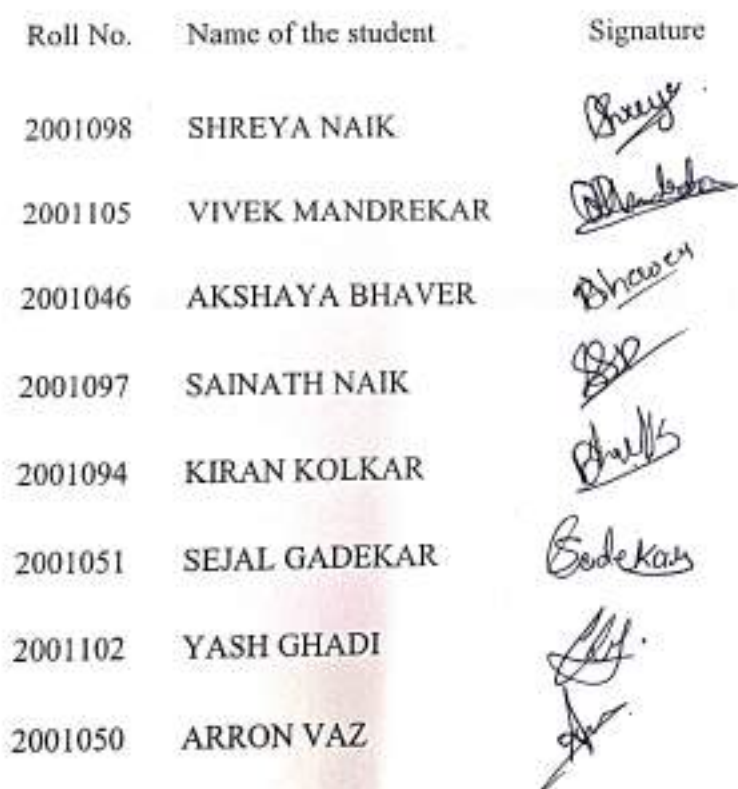 Roll No. Name of the student Signature
2001098 SHREYA NAIK Shreya
2001105 VIVEK MANDREKAR
2001046 AKSHAYA BHAVER Bhaver
2001097 SAINATH NAIK
2001094 KIRAN KOLKAR
2001051 SEJAL GADEKAR Gadekar
2001102 YASH GHADI
2001050 ARRON VAZ